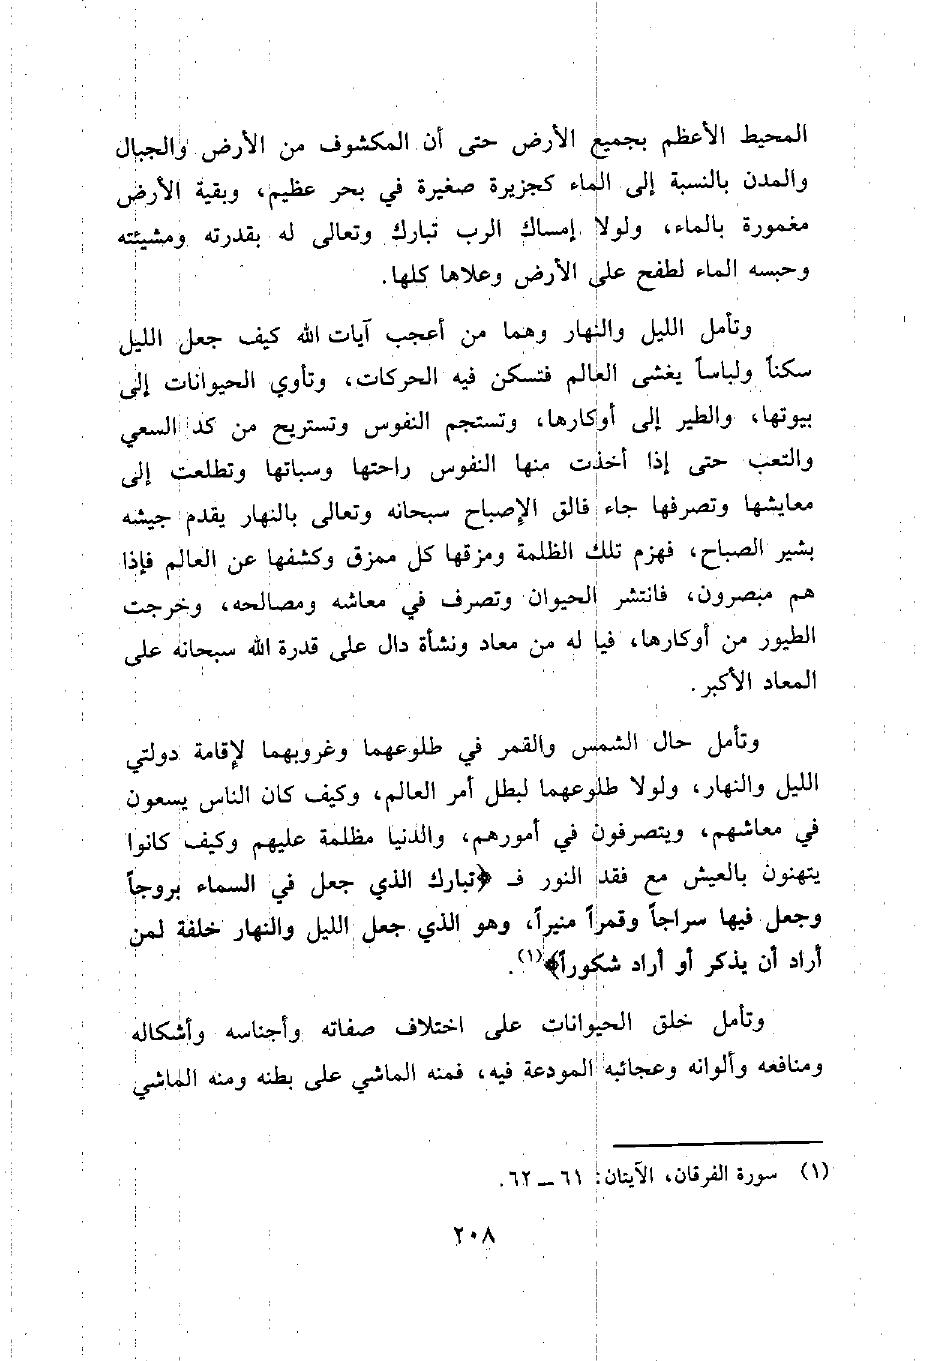 المحيط الأعظم بجميع الأرض حتى أن المكشوف من الأرض والجبال
والمدن بالنسبة إلى الماء كجزيرة صغيرة في بحر عظيم، وبقية الأرض
مغمورة بالماء، ولولا إمساك الرب تبارك وتعالى له بقدرته ومشيئته
وحبسه الماء لطفح على الأرض وعلاها كلها.
وتأمل الليل والنهار وهما من أعجب آيات الله كيف جعل الليل
سكناً ولباساً يغشى العالم فتسكن فيه الحركات، وتأوي الحيوانات إلى
بيوتها، والطير إلى أوكارها، وتستجم النفوس وتستريح من كد السعي
والتعب حتى إذا أخذت منها النفوس راحتها وسباتها وتطلعت إلى
معايشها وتصرفها جاء فالق الإصباح سبحانه وتعالى بالنهار يقدم جيشه
بشير الصباح، فهزم تلك الظلمة ومزقها كل ممزق وكشفها عن العالم فإذا
هم مبصرون، فانتشر الحيوان وتصرف في معاشه ومصالحه، وخرجت
الطيور من أوكارها، فيا له من معاد ونشأة دال على قدرة الله سبحانه على
المعاد الأكبر.
وتأمل حال الشمس والقمر في طلوعهما وغروبهما لإقامة دولتي
الليل والنهار، ولولا طلوعهما لبطل أمر العالم، وكيف كان الناس يسعون
في معاشهم، ويتصرفون في أمورهم، والدنيا مظلمة عليهم وكيف كانوا
يتهنون بالعيش مع فقد النور فـ ﴿تبارك الذي جعل في السماء بروجاً
وجعل فيها سراجاً وقمراً منيراً، وهو الذي جعل الليل والنهار خلفة لمن
أراد أن يذكر أو أراد شكوراً﴾(١).
وتأمل خلق الحيوانات على اختلاف صفاته وأجناسه وأشكاله
ومنافعه وألوانه وعجائبه المودعة فيه، فمنه الماشي على بطنه ومنه الماشي
(١) سورة الفرقان، الآيتان: ٦١ ــ ٦٢.
٢٠٨